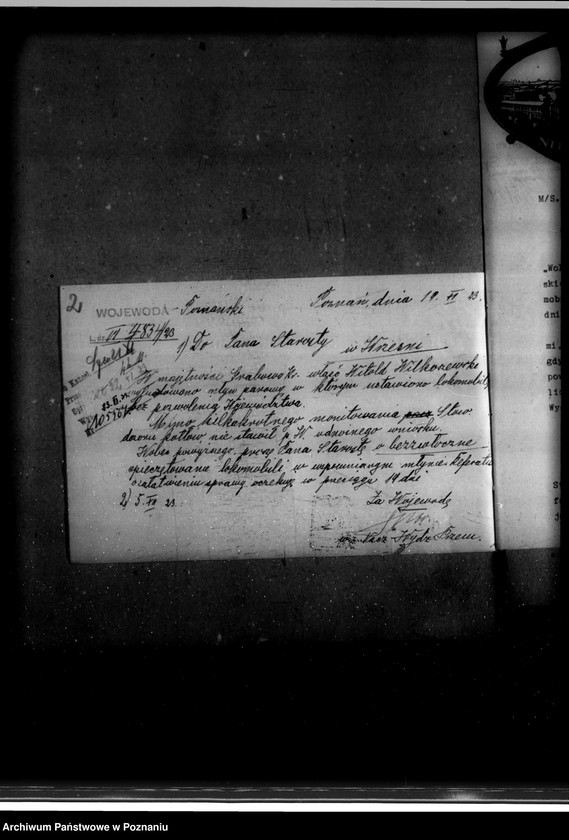 2
WOJEWODA Poznański
Poznań, dnia 19. VI 23.
L. dz. VI 4834/23
1) Do Pana Starosty
w Wrześni
W majętności Grabowo Kr. właśc Witold Wilkoszewski
wybudowano młyn parowy w którym ustawiono lokomobilę
bez pozwolenia Województwa.
Mimo kilkakrotnego monitowania Stow.
dozoru kotłów nie stawił p. W. odnośnego wniosku.
Wobec powyższego proszę Pana Starostę o bezzwłoczne
opieczętowanie lokomobili w wspomnianym młynie.
o załatwieniu sprawy oczekuję w przeciągu 14 dni
2) 5. VII 23.
Za Wojewodę
Wydz. Przem.
M/S.
"Wo
skie
mob
dni
mi.
gdy
pow
li
Wy
S
f
j
Archiwum Państwowe w Poznaniu